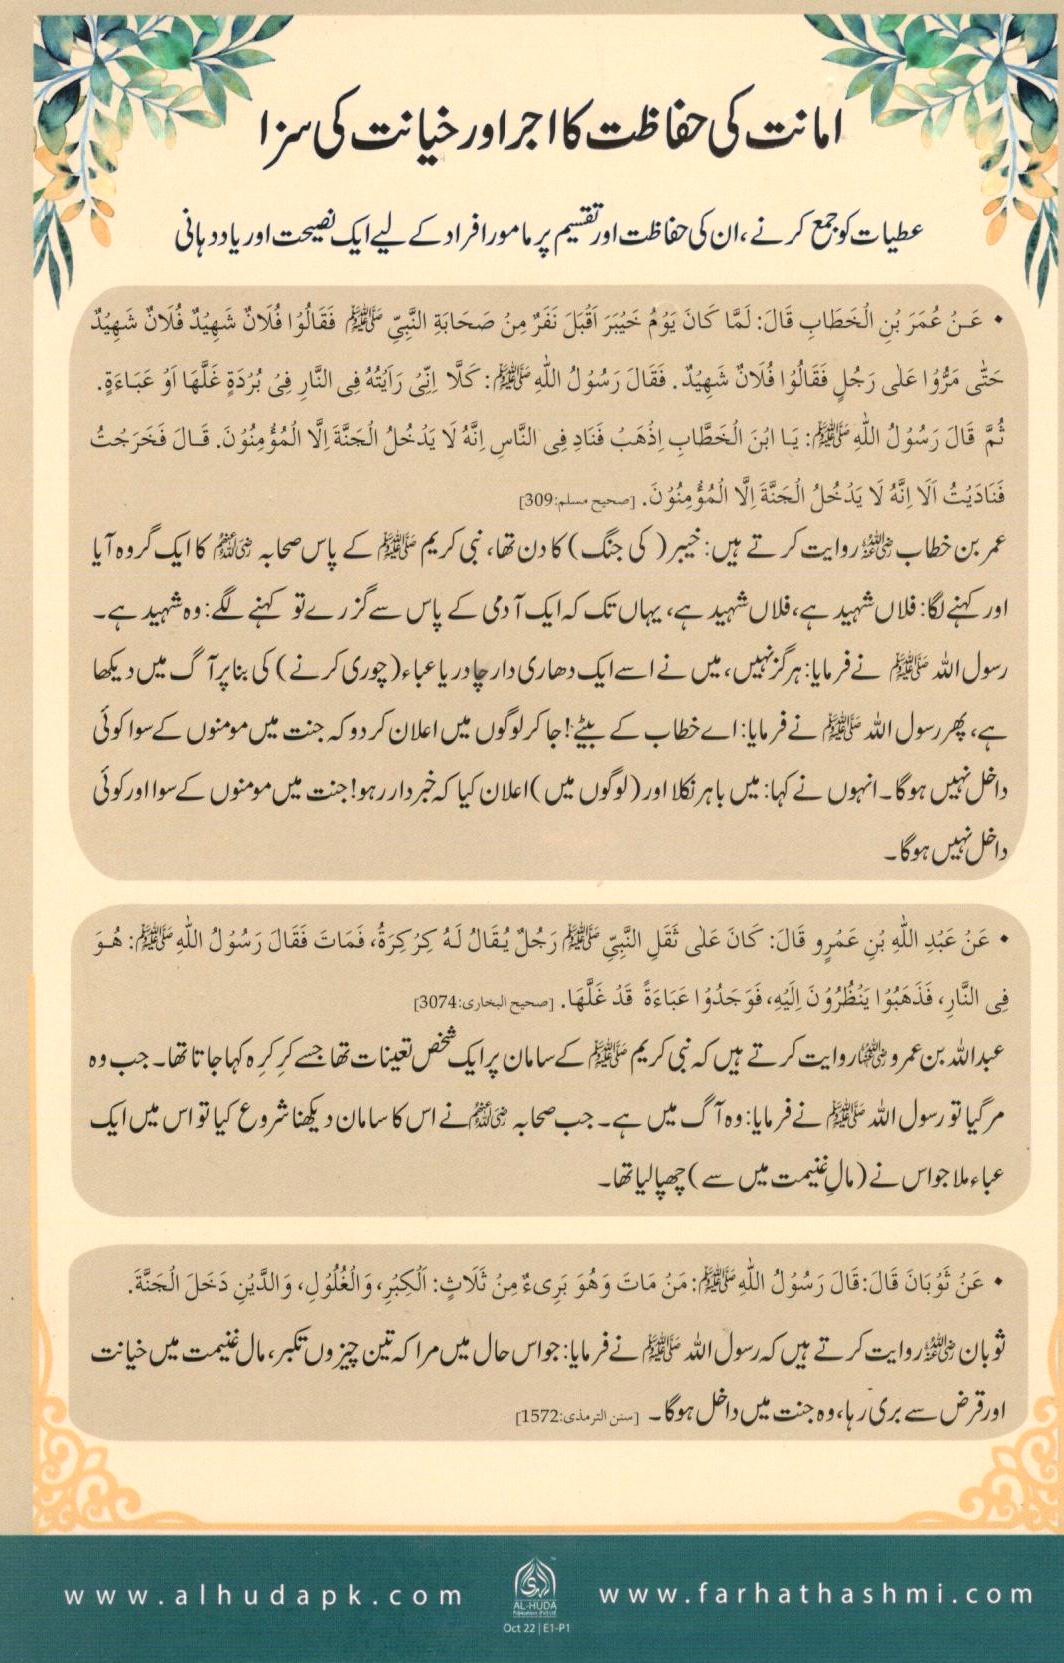 امانت کی حفاظت کا اجر اور خیانت کی سزا
عطیات کو جمع کرنے، ان کی حفاظت اور تقسیم پر مامور افراد کے لیے ایک نصیحت اور یاد دہانی
• عَنْ عُمَرَ بْنِ الْخَطَابِ قَالَ: لَمَّا كَانَ يَوْمُ خَيْبَرَ اَقْبَلَ نَفَرٌ مِنْ صَحَابَةِ النَّبِيِّ ﷺ فَقَالُوْا فُلَانٌ شَهِيْدٌ فُلَانٌ شَهِيْدٌ
حَتّٰى مَرُّوْا عَلٰى رَجُلٍ فَقَالُوْا فُلَانٌ شَهِيْدٌ. فَقَالَ رَسُوْلُ اللّٰهِ ﷺ: كَلَّا اِنِّىْ رَاَيْتُهُ فِى النَّارِ فِىْ بُرْدَةٍ غَلَّهَا اَوْ عَبَاءَةٍ.
ثُمَّ قَالَ رَسُوْلُ اللّٰهِ ﷺ: يَا ابْنَ الْخَطَّابِ اِذْهَبْ فَنَادِ فِى النَّاسِ اِنَّهُ لَا يَدْخُلُ الْجَنَّةَ اِلَّا الْمُؤْمِنُوْنَ. قَالَ فَخَرَجْتُ
فَنَادَيْتُ اَلَا اِنَّهُ لَا يَدْخُلُ الْجَنَّةَ اِلَّا الْمُؤْمِنُوْنَ. [صحيح مسلم:309]
عمر بن خطاب رضی اللہ عنہ روایت کرتے ہیں: خیبر (کی جنگ) کا دن تھا، نبی کریم ﷺ کے پاس صحابہ رضی اللہ عنہم کا ایک گروہ آیا
اور کہنے لگا: فلاں شہید ہے، فلاں شہید ہے، یہاں تک کہ ایک آدمی کے پاس سے گزرے تو کہنے لگے: وہ شہید ہے۔
رسول اللہ ﷺ نے فرمایا: ہرگز نہیں، میں نے اسے ایک دھاری دار چادر یا عباء (چوری کرنے) کی بنا پر آگ میں دیکھا
ہے، پھر رسول اللہ ﷺ نے فرمایا: اے خطاب کے بیٹے! جا کر لوگوں میں اعلان کردو کہ جنت میں مومنوں کے سوا کوئی
داخل نہیں ہوگا۔ انہوں نے کہا: میں باہر نکلا اور (لوگوں میں) اعلان کیا کہ خبردار رہو! جنت میں مومنوں کے سوا اور کوئی
داخل نہیں ہوگا۔
• عَنْ عَبْدِ اللّٰهِ بْنِ عَمْرٍو قَالَ: كَانَ عَلٰى ثَقَلِ النَّبِيِّ ﷺ رَجُلٌ يُقَالُ لَهُ كِرْكِرَةُ، فَمَاتَ فَقَالَ رَسُوْلُ اللّٰهِ ﷺ: هُوَ
فِى النَّارِ، فَذَهَبُوْا يَنْظُرُوْنَ اِلَيْهِ، فَوَجَدُوْا عَبَاءَةً قَدْ غَلَّهَا. [صحيح البخارى:3074]
عبداللہ بن عمرو رضی اللہ عنہما روایت کرتے ہیں کہ نبی کریم ﷺ کے سامان پر ایک شخص تعینات تھا جسے کِرکِرہ کہا جاتا تھا۔ جب وہ
مر گیا تو رسول اللہ ﷺ نے فرمایا: وہ آگ میں ہے۔ جب صحابہ رضی اللہ عنہم نے اس کا سامان دیکھنا شروع کیا تو اس میں ایک
عباء ملا جو اس نے (مالِ غنیمت میں سے) چھپا لیا تھا۔
• عَنْ ثَوْبَانَ قَالَ: قَالَ رَسُوْلُ اللّٰهِ ﷺ: مَنْ مَاتَ وَهُوَ بَرِىءٌ مِنْ ثَلَاثٍ: اَلْكِبْرِ، وَالْغُلُوْلِ، وَالدَّيْنِ دَخَلَ الْجَنَّةَ.
ثوبان رضی اللہ عنہ روایت کرتے ہیں کہ رسول اللہ ﷺ نے فرمایا: جو اس حال میں مرا کہ تین چیزوں تکبر، مال غنیمت میں خیانت
اور قرض سے بری رہا، وہ جنت میں داخل ہوگا۔ [سنن الترمذى:1572]
www.alhudapk.com
AL-HUDA
Publications (Pvt) Ltd
Oct 22 | E1-P1
www.farhathashmi.com